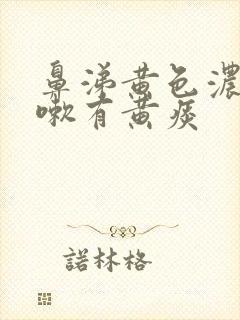 鼻涕黄色濃
嗽有黄痰
諾林格